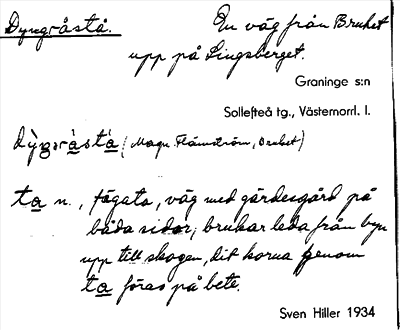 Dyngråstå. En väg från Bruket
upp på Lingsberget.
Graninge s:n
Sollefteå tg., Västernorrl. l.
dyŋgråstå (Magn. Flämström, Bruket)
ta n., fägata, väg med gärdesgård på
båda sidor; brukar leda från byn
upp till skogen, dit korna genom
ta föras på bete.
Sven Hiller 1934